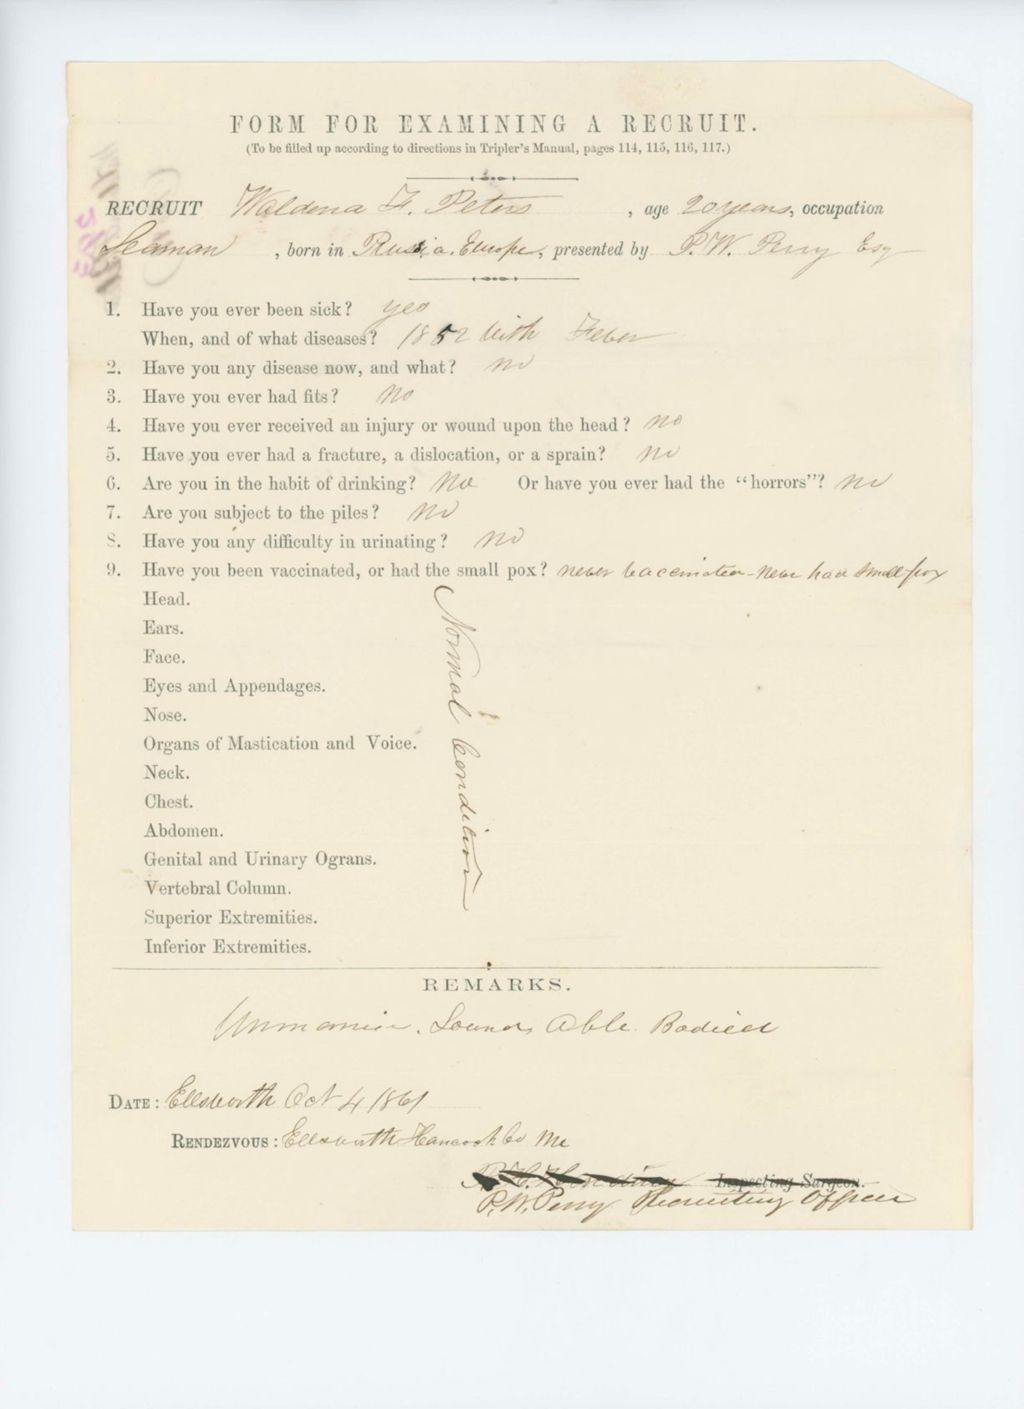 FORM FOR EXAMINING A RECRUIT.
(To be filled up according to directions in Tripler's Manual, pages 114, 115, 116, 117.)
RECRUIT Waldema F. Peters, age 20 years, occupation
Seaman, born in Russia. Europe, presented by P. W. Perry Esq
1. Have you ever been sick? yes
When, and of what diseases? 1852 With Feber
2. Have you any disease now, and what? no
3. Have you ever had fits? No
4. Have you ever received an injury or wound upon the head? no
5. Have you ever had a fracture, a dislocation, or a sprain? no
6. Are you in the habit of drinking? No Or have you ever had the "horrors"? no
7. Are you subject to the piles? no
8. Have you any difficulty in urinating? no
9. Have you been vaccinated, or had the small pox? never vaccinated - Never had small-pox
Head.
Ears.
Face.
Eyes and Appendages.
Nose.
Organs of Mastication and Voice.
Neck.
Chest.
Abdomen.
Genital and Urinary Ograns.
Vertebral Column.
Superior Extremities.
Inferior Extremities.
Normal Condition
REMARKS.
Unmarried. Sound, Able Bodied
DATE: Ellsworth Oct 4 1861
RENDEZVOUS: Ellsworth Hancock Co Me
Inspecting Surgeon.
P. W. Perry Recruiting Officer